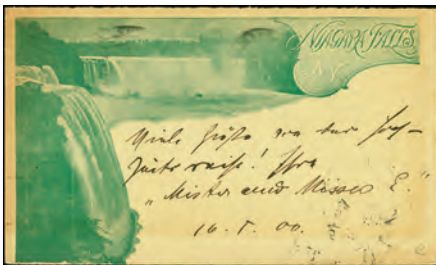 NIAGARA FALLS
N.Y.
Viele Grüße von der Hoch-
zeitsreise! Ihre
„Mister und Misses E."
16. 5. 00.